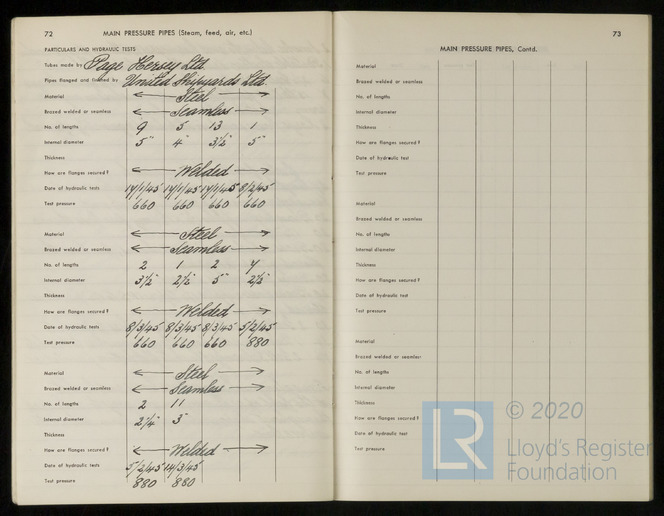 72 MAIN PRESSURE PIPES (Steam, feed, air, etc.)
PARTICULARS AND HYDRAULIC TESTS
Tubes made by Page Hersey Ltd.
Pipes flanged and finished by United Shipyards Ltd
Material Steel
Brazed welded or seamless Seamless
No. of lengths 9 5 13 1
Internal diameter 5" 4" 3½" 5"
Thickness
How are flanges secured? Welded
Date of hydraulic tests 8/2/45
Test pressure 660 660 660 660
Material Steel
Brazed welded or seamless Seamless
No. of lengths 2 1 2
Internal diameter 3½" 2½" 5" 2½"
Thickness
How are flanges secured? Welded
Date of hydraulic tests 8/3/45 8/3/45 8/3/45 5/2/45
Test pressure 660 660 660 880
Material Steel
Brazed welded or seamless Seamless
No. of lengths 2 11
Internal diameter 2¼" 3"
Thickness
How are flanges secured? Welded
Date of hydraulic tests 5/2/45 14/3/45
Test pressure 880 880
73
MAIN PRESSURE PIPES, Contd.
Material
Brazed welded or seamless
No. of lengths
Internal diameter
Thickness
How are flanges secured?
Date of hydraulic test
Test pressure
Material
Brazed welded or seamless
No. of lengths
Internal diameter
Thickness
How are flanges secured?
Date of hydraulic test
Test pressure
Material
Brazed welded or seamless
No. of lengths
Internal diameter
Thickness
How are flanges secured?
Date of hydraulic test
Test pressure
LR © 2020
Lloyd's Register
Foundation